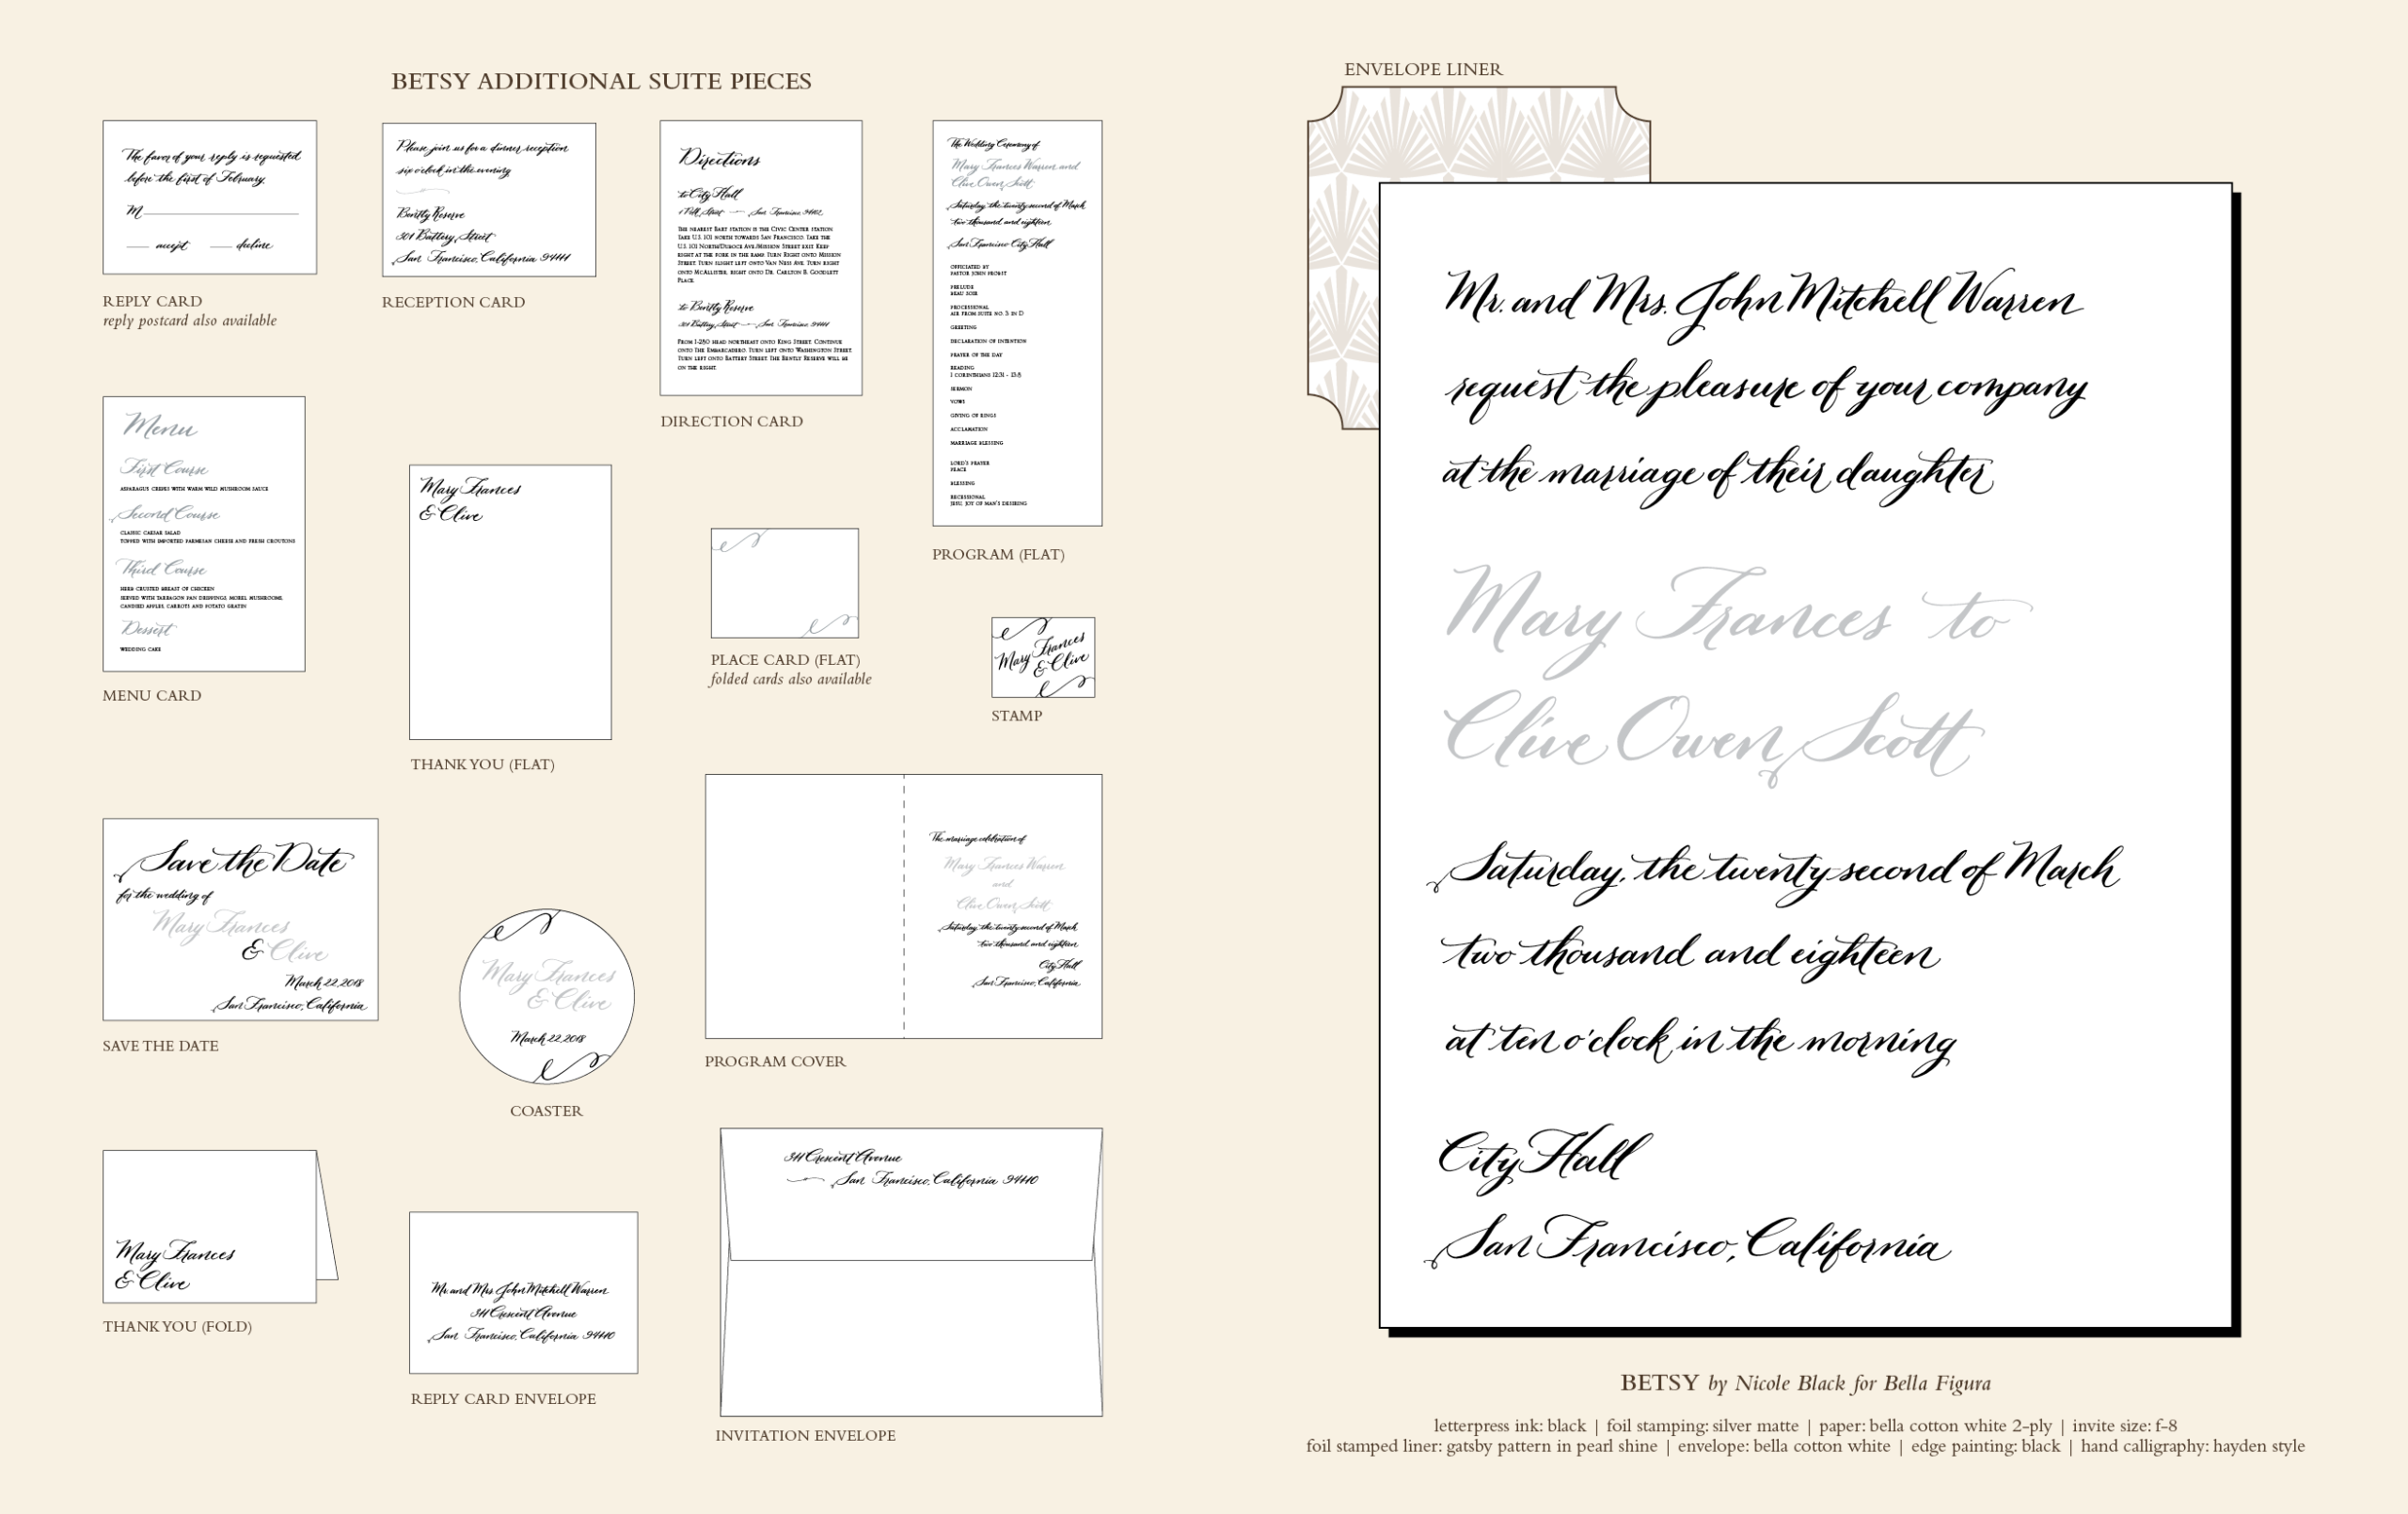 BETSY ADDITIONAL SUITE PIECES
The favor of your reply is requested
before the first of February.
M
accept decline
REPLY CARD
reply postcard also available
Please join us for a dinner reception
six o'clock in the evening
Bently Reserve
301 Battery Street
San Francisco, California 94111
RECEPTION CARD
Directions
to City Hall
San Francisco 94102
The nearest Bart station is the Civic Center station
Take U.S. 101 north towards San Francisco. Take the
U.S. 101 North/Duboce Ave/Mission Street exit. Keep
right at the fork in the ramp. Turn Right onto Mission
Street. Turn slight left onto Van Ness Ave. Turn right
onto McAllister, right onto Dr. Carlton B. Goodlett
Place.
to Bently Reserve
301 Battery Street San Francisco 94111
From I-280 head northeast onto King Street. Continue
onto The Embarcadero. Turn left onto Washington Street.
Turn left onto Battery Street. The Bently Reserve will be
on the right.
DIRECTION CARD
The Wedding Ceremony of
Mary Frances Warren and
Clive Owen Scott
Saturday, the twenty second of March
two thousand and eighteen
San Francisco City Hall
OFFICIATED BY
PASTOR JOHN PROBST
PRELUDE
BEAU SOIR
PROCESSIONAL
AIR FROM SUITE NO. 3 IN D
GREETING
DECLARATION OF INTENTION
PRAYER OF THE DAY
READING
1 CORINTHIANS 12:31 - 13:8
SERMON
VOWS
GIVING OF RINGS
ACCLAMATION
MARRIAGE BLESSING
LORD'S PRAYER
PEACE
BLESSING
RECESSIONAL
JESU, JOY OF MAN'S DESIRING
PROGRAM (FLAT)
Menu
First Course
ASPARAGUS CREPES WITH WARM WILD MUSHROOM SAUCE
Second Course
CLASSIC CAESAR SALAD
TOPPED WITH IMPORTED PARMESAN CHEESE AND FRESH CROUTONS
Third Course
HERB CRUSTED BREAST OF CHICKEN
SERVED WITH TARRAGON PAN DRIPPINGS, MOREL MUSHROOMS,
CANDIED APPLES, CARROTS AND POTATO GRATIN
Dessert
WEDDING CAKE
MENU CARD
Mary Frances
& Clive
THANK YOU (FLAT)
PLACE CARD (FLAT)
folded cards also available
Mary Frances
& Clive
STAMP
Save the Date
for the wedding of
Mary Frances
& Clive
March 22, 2018
San Francisco, California
SAVE THE DATE
Mary Frances
& Clive
March 22, 2018
COASTER
The marriage celebration of
Mary Frances Warren
and
Clive Owen Scott
Saturday, the twenty second of March
two thousand and eighteen
City Hall
San Francisco, California
PROGRAM COVER
Mary Frances
& Clive
THANK YOU (FOLD)
Mr. and Mrs. John Mitchell Warren
311 Crescent Avenue
San Francisco, California 94110
REPLY CARD ENVELOPE
311 Crescent Avenue
San Francisco, California 94110
INVITATION ENVELOPE
ENVELOPE LINER
Mr. and Mrs. John Mitchell Warren
request the pleasure of your company
at the marriage of their daughter
Mary Frances to
Clive Owen Scott
Saturday, the twenty second of March
two thousand and eighteen
at ten o'clock in the morning
City Hall
San Francisco, California
BETSY by Nicole Black for Bella Figura
letterpress ink: black | foil stamping: silver matte | paper: bella cotton white 2-ply | invite size: f-8
foil stamped liner: gatsby pattern in pearl shine | envelope: bella cotton white | edge painting: black | hand calligraphy: hayden style